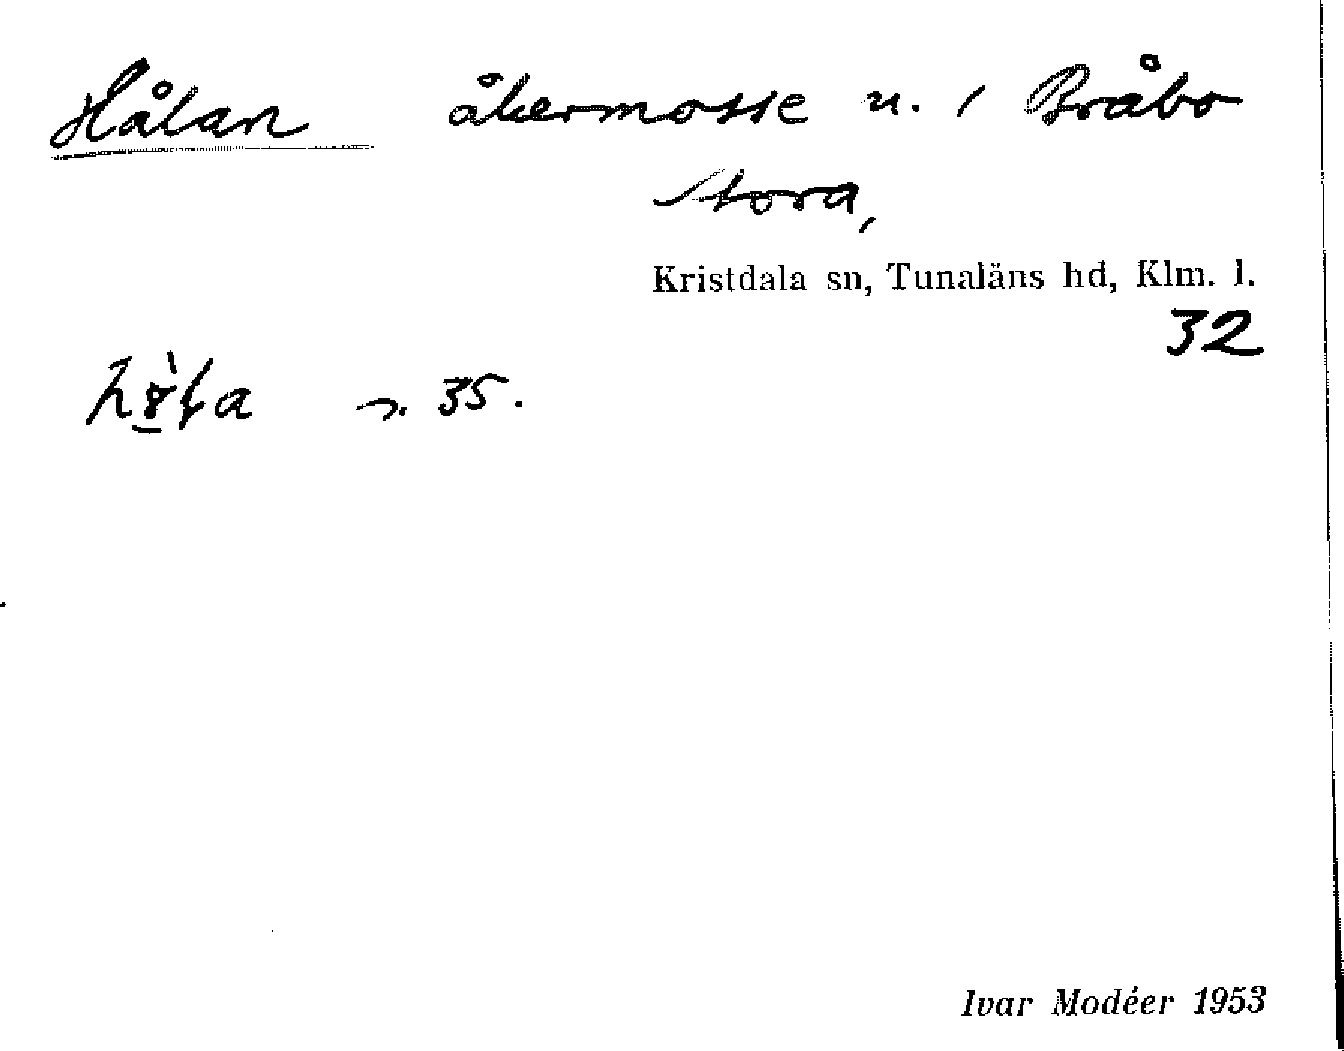 Hålan åkermosse u. / Bråbo
Stora,
Kristdala sn, Tunaläns hd, Klm. l.
32
35.
Ivar Modéer 1953